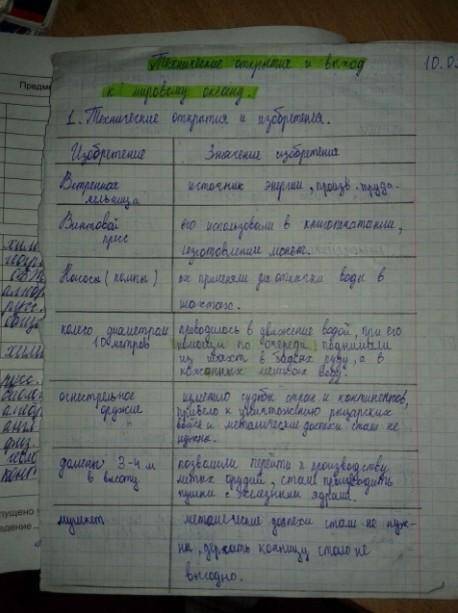 Технические открытия и выход
10.0
к мировому океану.
1. Технические открытия и изобретения.
Изобретение
Значение изобретения
Ветренная
мельница
источник энергии, произв. труда.
Винтовой
пресс
его использовали в книгопечатании,
изготовлении монет.
Насосы (помпы)
их применяли для откачки воды в
шахтах.
колесо диаметром
10 метров
приводилось в движение водой, при его
помощи по очереди поднимали
из шахт в бадьях руду, а в
кожанных мешках воду.
огнестрельное
оружие
изменило судьбы стран и континентов,
привело к уничтожению рыцарских
войск и металические доспехи стали не
нужны.
домены 3-4 м
в высоту
позволили перейти к производству
литых орудий, стали производить
пушки с железными ядрами.
мушкет
металические доспехи стали не нуж-
ны, держать конницу стало не
выгодно.
Предме
хим
алгеб
русс.
хими
русс.
алгеб
англ.
физ.
геом
пущено
ведение